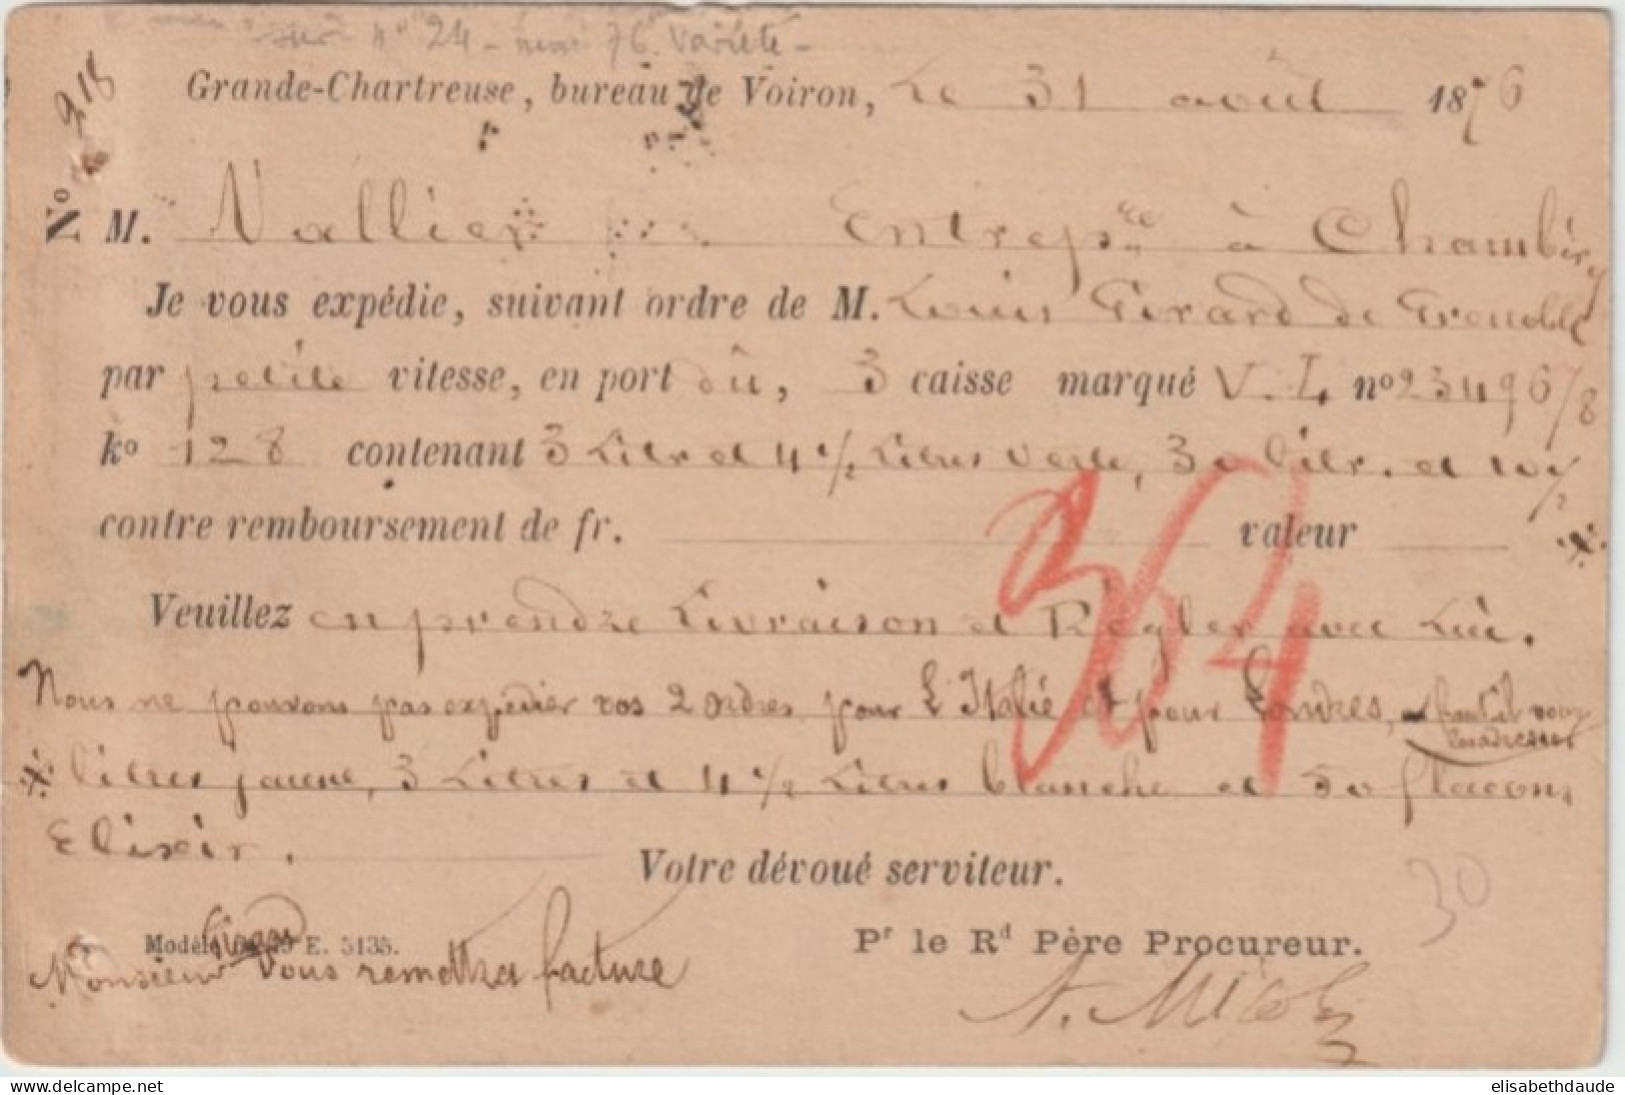 sur n° 24 - 76. Variété -
Grande-Chartreuse, bureau de Voiron, Le 31 août 1876
N° 218
M. Vallier Entrep^re à Chambéry
Je vous expédie, suivant ordre de M. Louis Girard de Grenoble
par petite vitesse, en port dû, 3 caisse marqué V. L. n° 23496/8
k° 128 contenant 3 Litr et 4 ½ Litres verte, 30 litr. et 10/2
contre remboursement de fr. valeur
364
Veuillez en prendre Livraison et Règler avec Lui.
Nous ne pouvons pas expédier vos 2 ordres pour L'Italie et pour Londres, faut il vous
litres jaune, 3 Litres et 4 ½ Litres blanche et 50 flacons
Elixir.
Votre dévoué serviteur.
30
Modèle E. 5135.
P^r le R^d Père Procureur.
Monsieur Girard vous remettra facture
www.delcampe.net
elisabethdaude